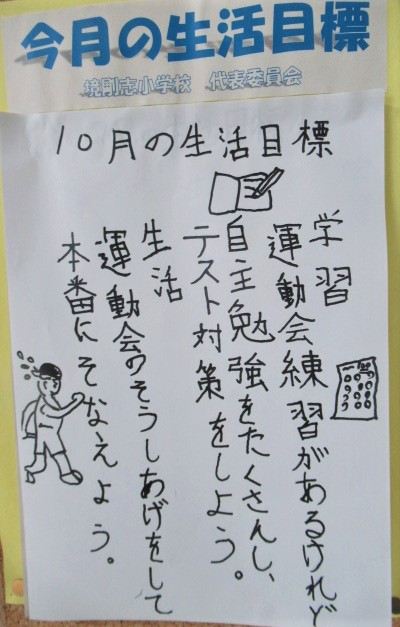 今月の生活目標
境剛志小学校 代表委員会
10月の生活目標
学習
運動会練習があるけれど
自主勉強をたくさんし、
テスト対策をしよう。
生活
運動会のそうしあげをして
本番にそなえよう。